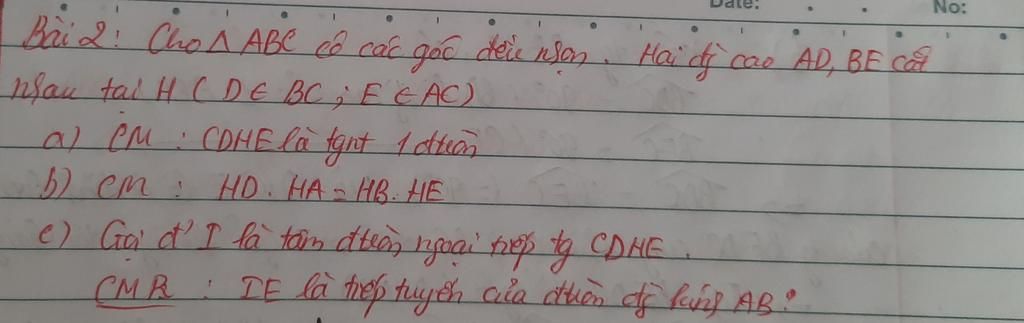 Date: No:
Bài 2: Cho Δ ABC có các góc đều nhọn. Hai đg cao AD, BE cắt
nhau tại H (D ∈ BC; E ∈ AC)
a) CM: CDHE là tgnt 1 đtròn
b) CM: HD. HA = HB. HE
c) Gọi đ' I là tâm đtròn ngoại tiếp tg CDHE.
CMR: IE là tiếp tuyến của đtròn đg kính AB?